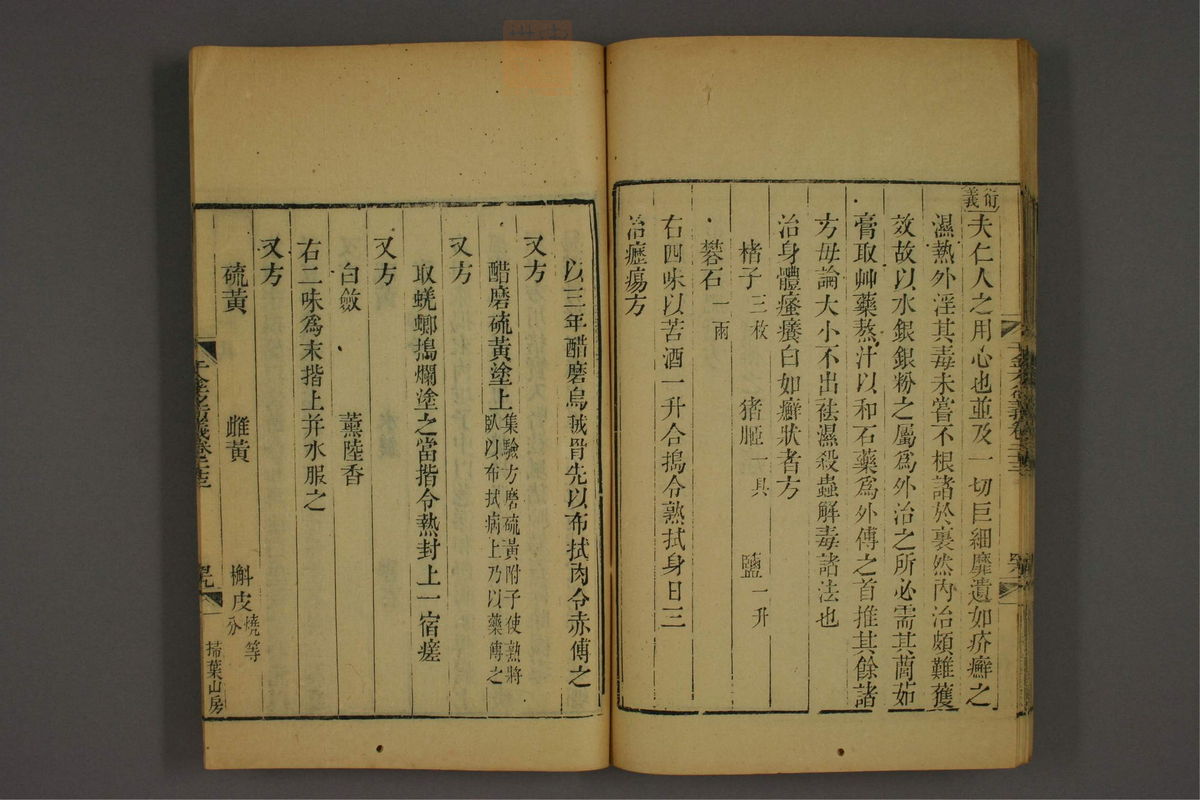 衍義
夫仁人之用心也並及一切巨細靡遺如疥癬之
濕熱外淫其毒未嘗不根諸於裏然內治頗難蒦
效故以水銀銀粉之屬爲外治之所必需其藺茹
膏取艸藥熬汁以和石藥爲外傅之首推其餘諸
方毋論大小不出祛濕殺蟲解毒諸法也
治身體瘙癢白如癬狀者方
楮子三枚 猪胵一具 鹽一升
礬石一兩
右四味以苦酒一升合搗令熟拭身日三
治癧瘍方
以三年醋磨烏賊骨先以布拭肉令赤傅之
又方
醋磨硫黃塗上集驗方磨硫黃附子使熟將
臥以布拭病上乃以藥傅之
又方
取蜣螂搗爛塗之當揩令熱封上一宿瘥
又方
白蘞 薰陸香
右二味爲末揩上幷水服之
又方
硫黃 雌黃 槲皮燒等
分
掃葉山房